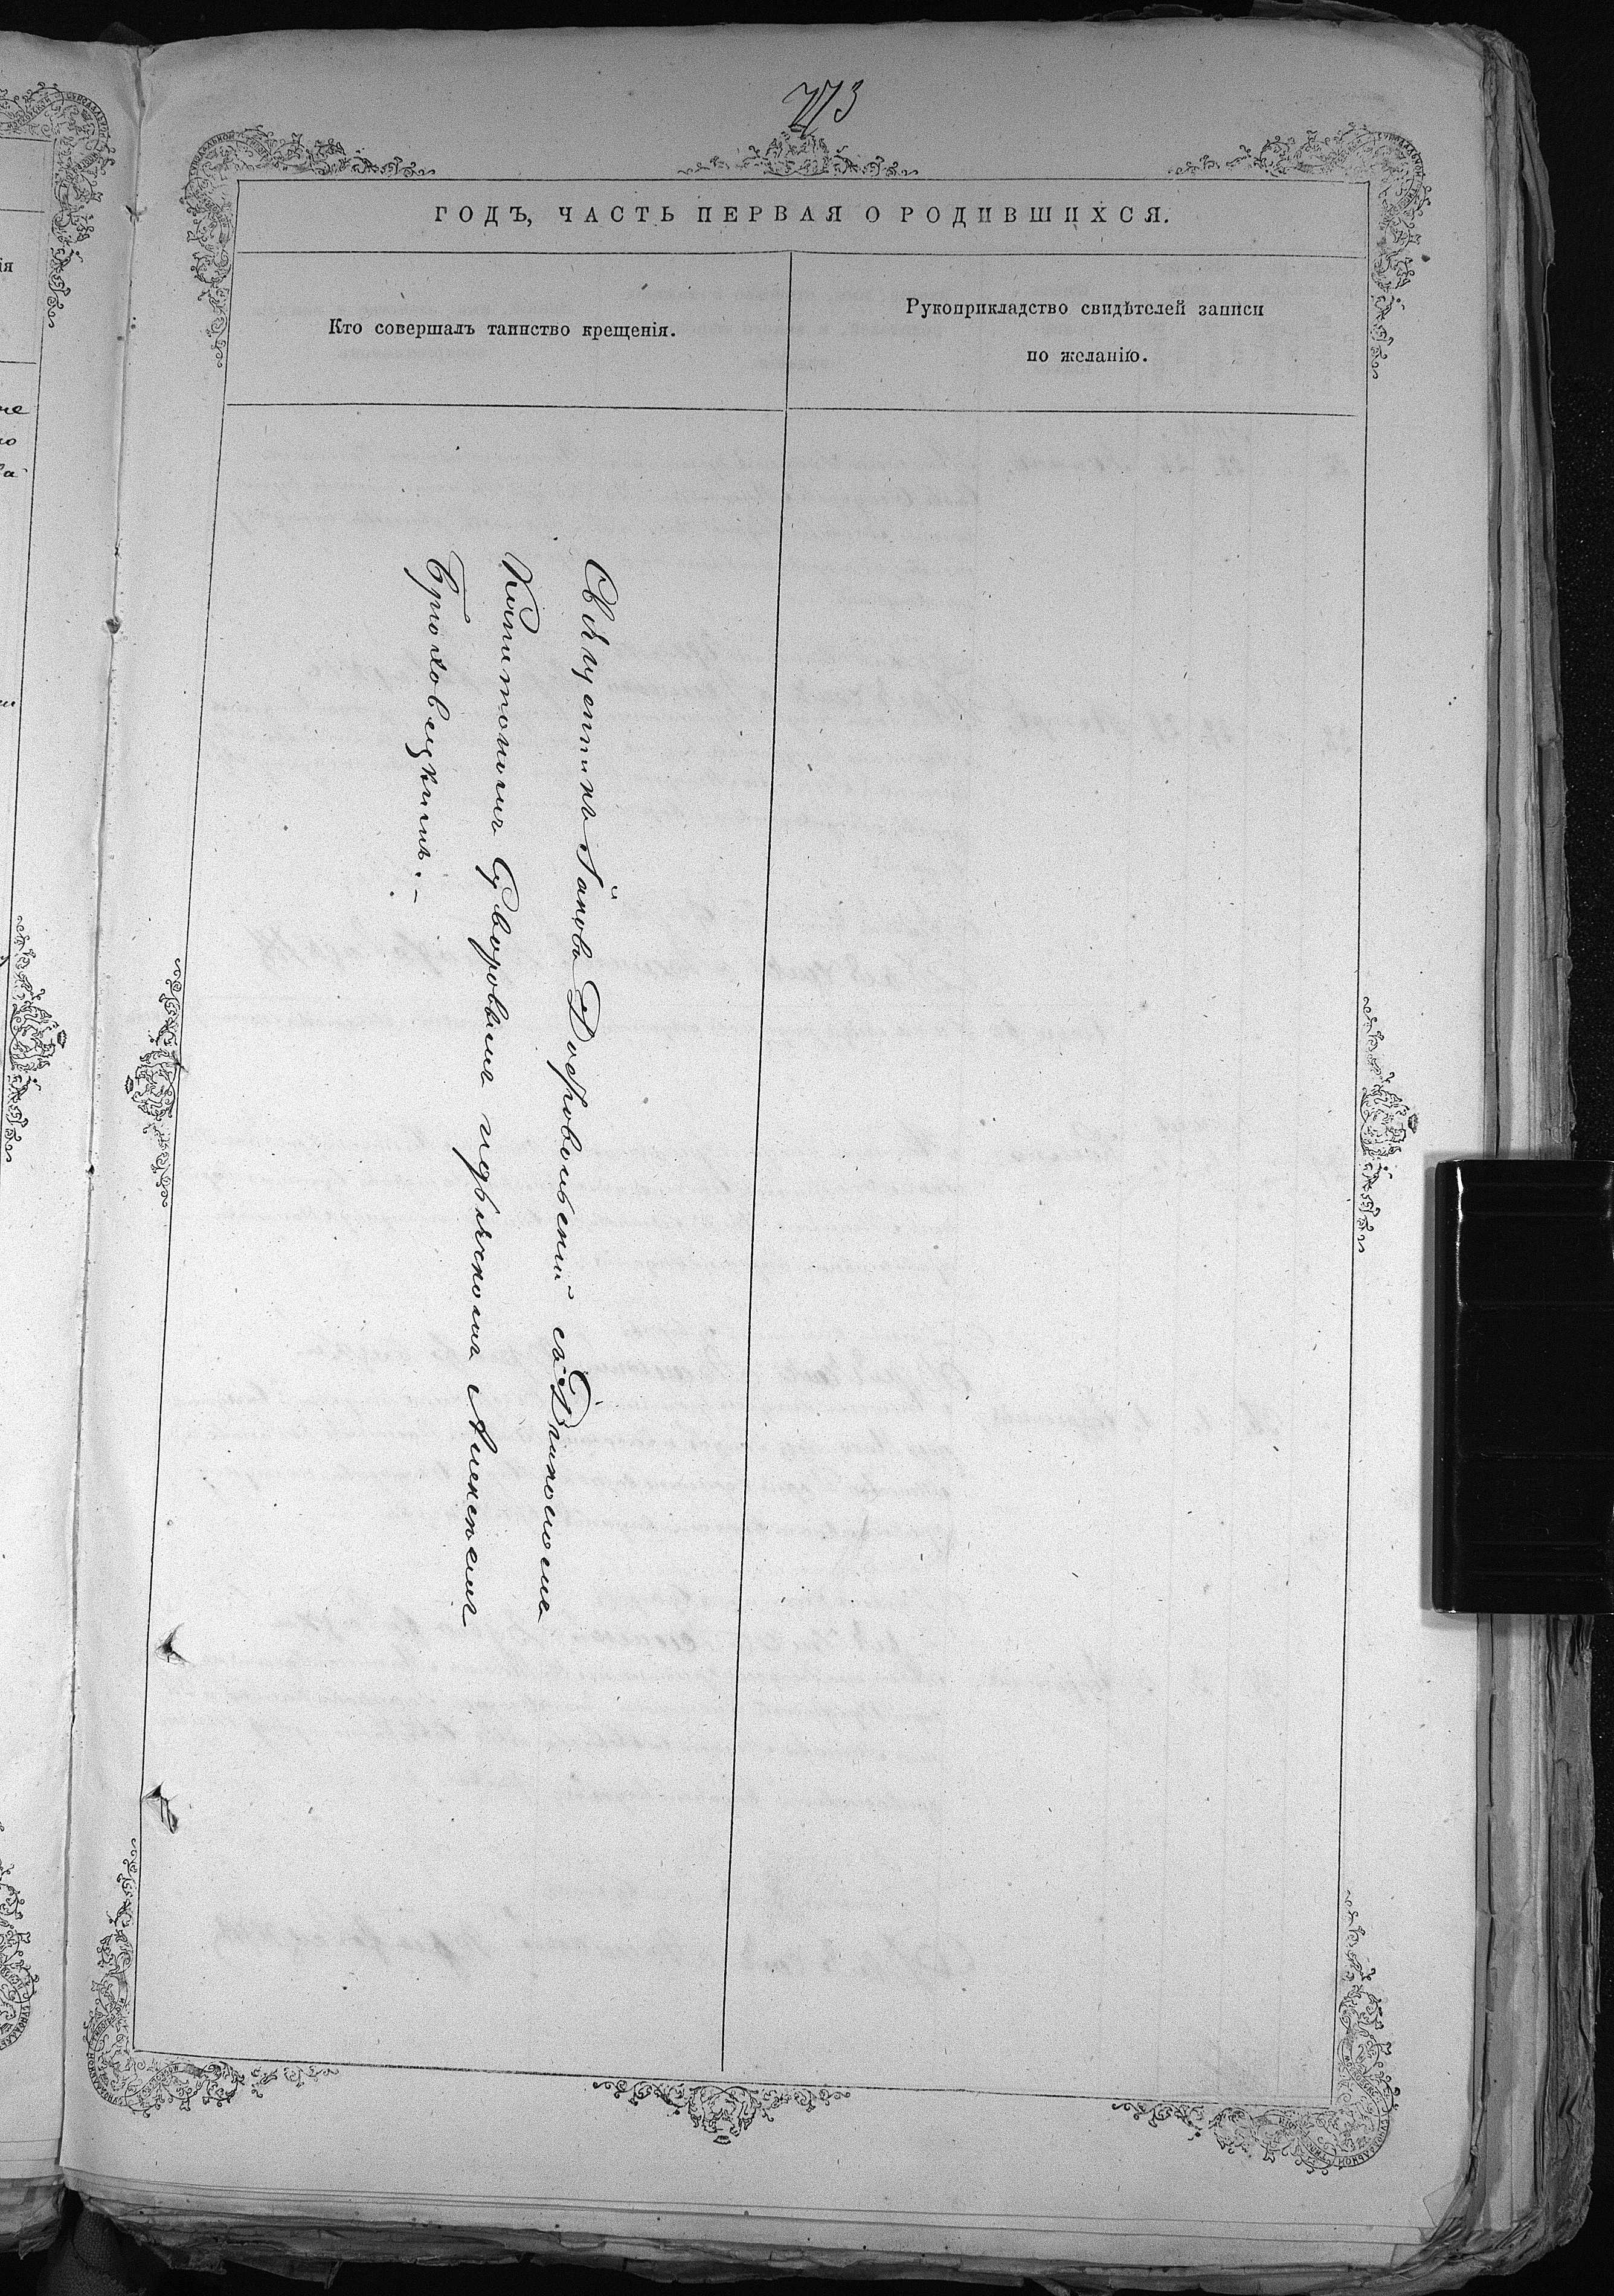 773
ГОДЪ, ЧАСТЬ ПЕРВАЯ О РОДИВШИХСЯ.
Кто совершалъ таинство крещенія.
Рукоприкладство свидѣтелей записи
по желанію.
Священникъ Іаковъ Добровольскій съ Діакономъ
Капитономъ Суворовымъ и дьячкомъ Алексѣемъ
Брюховецкимъ.-